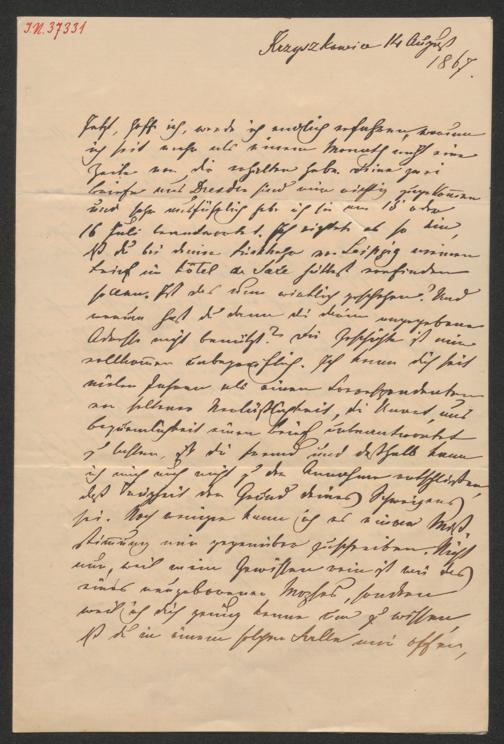 I.N. 37331
Krzyszkowice 14 August
1867.
Jetzt, hoffe ich, werde ich endlich erfahren, warum
ich seit mehr als einem Monath nicht eine
Zeile von dir erhalten habe. Deine zwei
Briefe aus Dresden sind mir richtig zugekommen
und sehr ausführlich habe ich sie am 15 oder
16 Juli beantwortet. Ich richtete es so ein,
daß du bei deiner Rückkehr von Leipzig meinen
Brief im Hôtel de Saxe hättest vorfinden
sollen. Ist das nun wirklich geschehen? Und
warum hast du dann die dir angegebene
Adresse nicht benützt? Die Geschichte ist mir
vollkommen unbegreiflich. Ich kenne dich seit
vielen Jahren als einen Correspondenten
von seltener Verläßlichkeit, die Unart, aus
Bequemlichkeit einen Brief unbeantwortet
zu lassen, ist dir fremd und deßhalb kann
ich mich auch nicht zu der Annahme entschließen,
daß Trägheit der Grund deines Schweigens
sei. Noch weniger kann ich es einer Miß
stimmung mir gegenüber zuschreiben. Nicht
nur, weil mein Gewissen rein ist wie das
eines neugeborenen Mopses, sondern
weil ich dich genug kenne um zu wissen
daß du in einem solchen Falle mir offen,